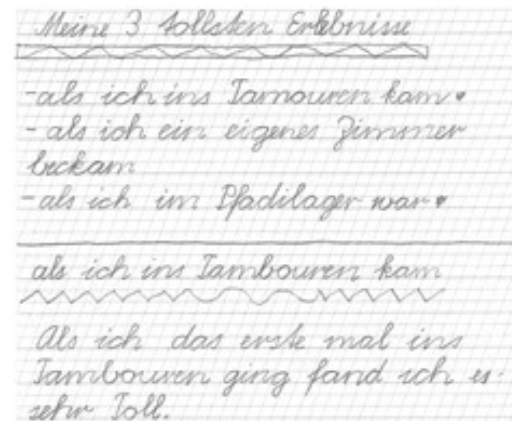 Meine 3 tollsten Erlebnisse
-als ich ins Tamouren kam.
- als ich ein eigenes Zimmer
beckam
-als ich im Pfadilager war.
als ich ins Tambouren kam
Als ich das erste mal ins
Tambouren ging fand ich es
sehr Toll.